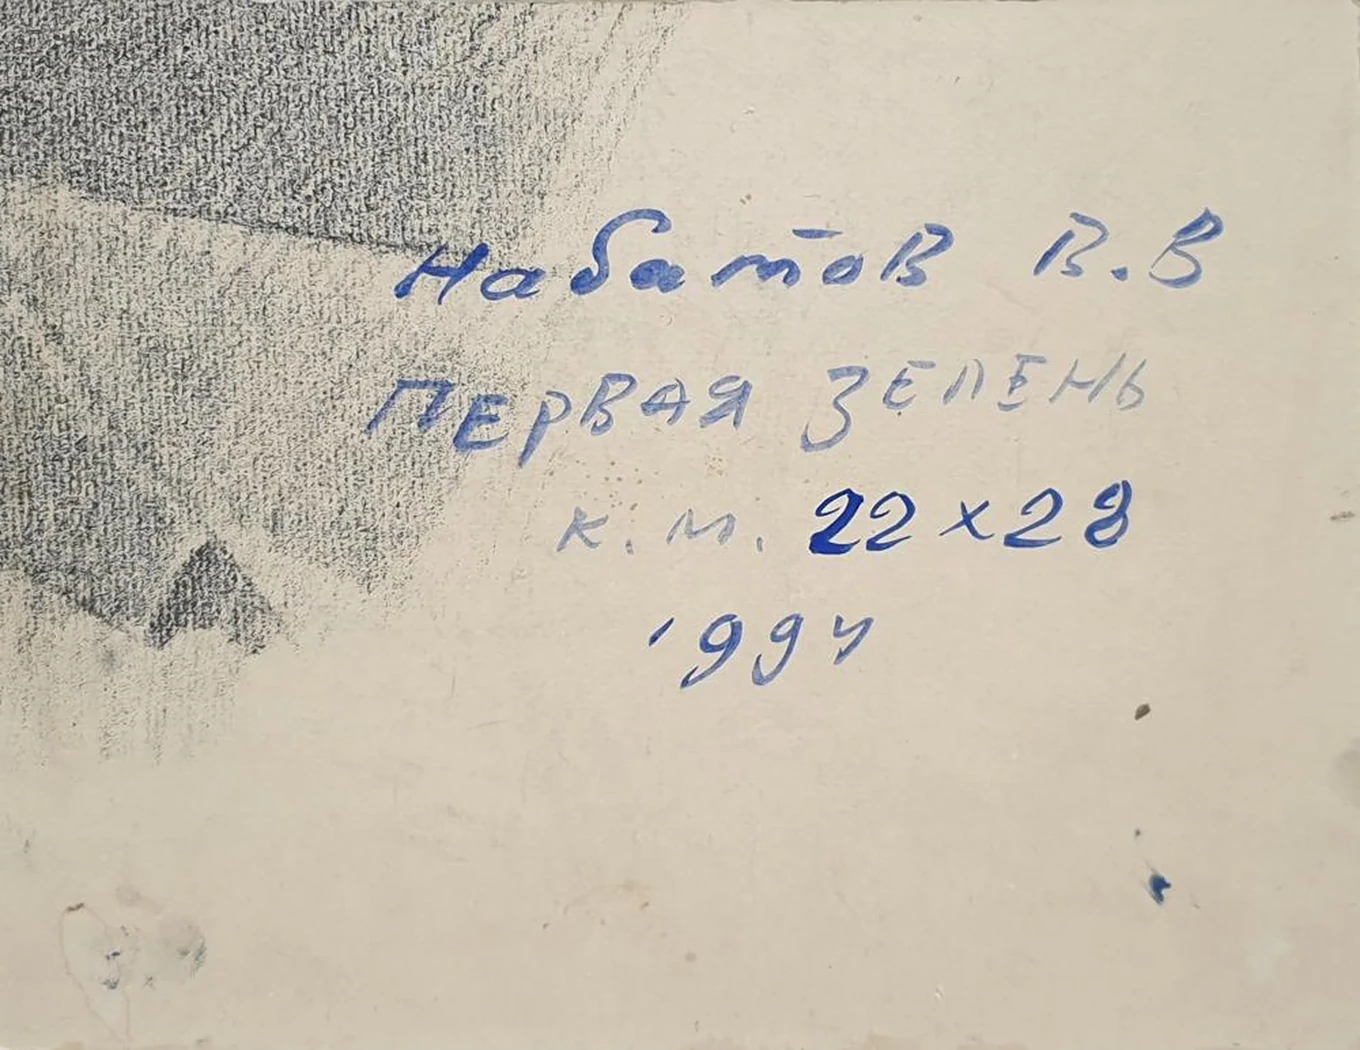 Набатов В.В
ПЕРВАЯ ЗЕЛЕНЬ
к.м. 22х28
1994